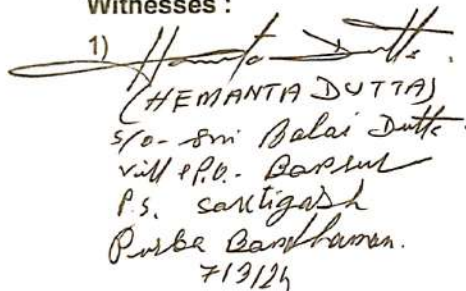 Witnesses :
1) Hemanta Dutta.
(HEMANTA DUTTA)
S/o- Sri Balai Dutta.
Vill & P.O. Barsul
P.S. Saktigarh
Purba Bardhaman.
7/3/24